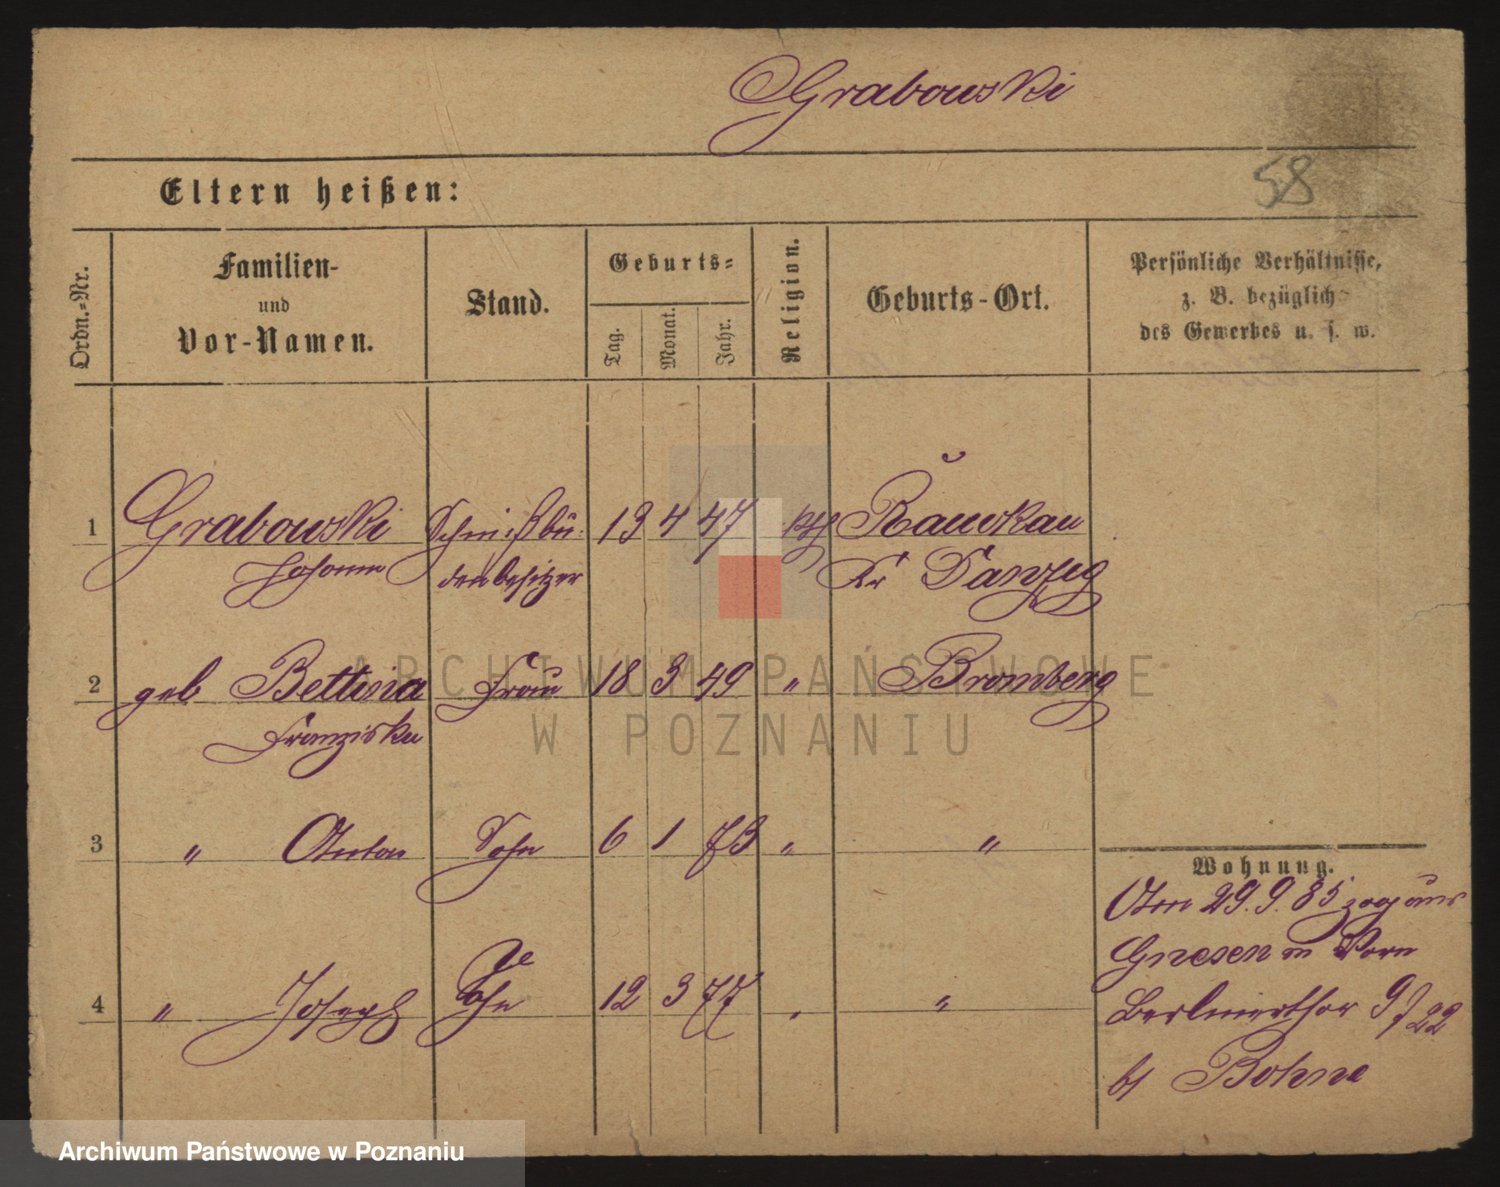 Grabowski
58
Eltern heißen:
Ordn.-Nr.
Familien-
und
Vor-Namen.
Stand.
Geburts-
Tag.
Monat.
Jahr.
Religion.
Geburts-Ort.
Persönliche Verhältnisse,
z. B. bezüglich
des Gewerbes u. s. w.
1 Grabowski Schießbu- 13 4 47 kth Rauckau
Johann denbesitzer Kr Danzig
2 geb Bettina Frau 18 3 49 " Bromberg
Franziska
3 " Anton Sohn 6 1 73 " "
4 " Joseph Sohn 12 3 77 " "
Wohnung.
Am 29.9.85 zog aus
Gnesen n Vorn
Berlinerthor 9/22
bf Bohne
ARCHIWUM PAŃSTWOWE
W POZNANIU
Archiwum Państwowe w Poznaniu